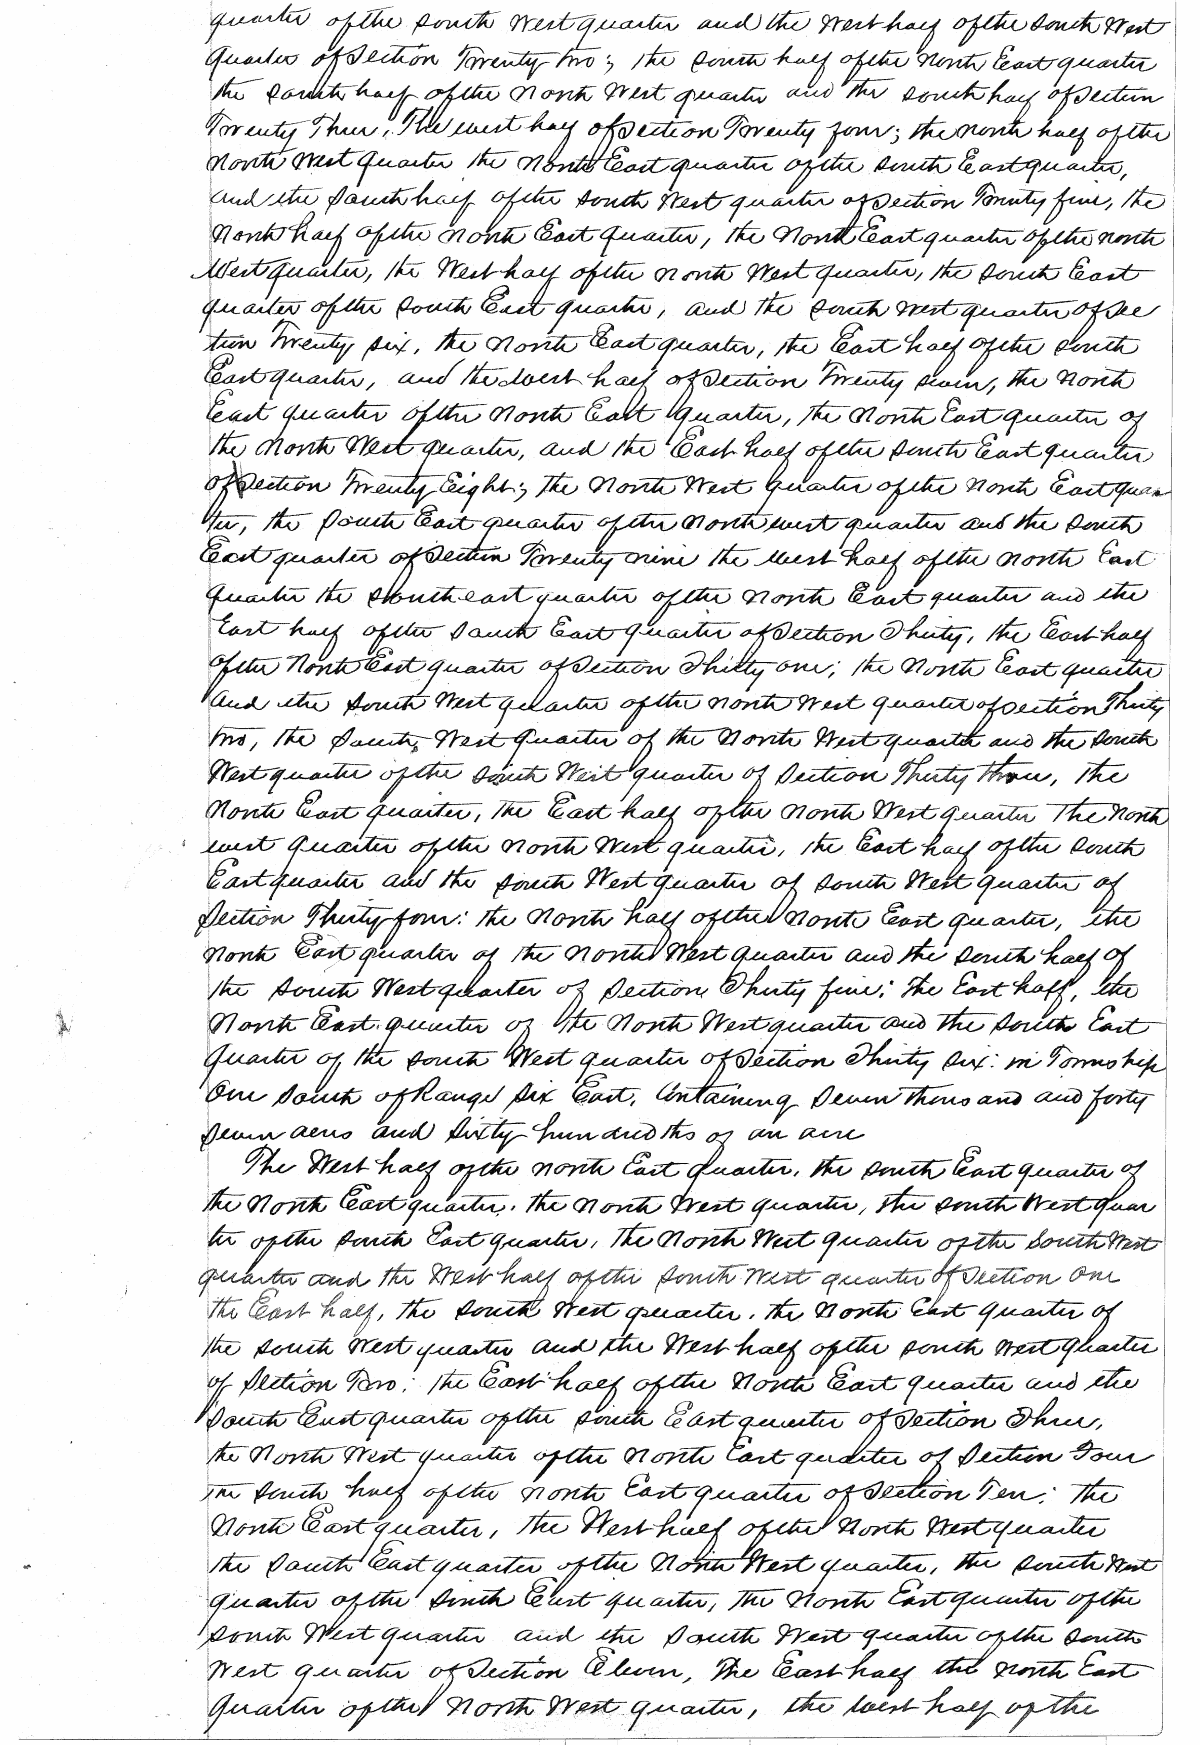 quarter of the South West quarter and the West half of the South West
Quarter of Section Twenty two; the South half of the North East quarter
the South half of the North West quarter and the South half of Section
Twenty Three, The west half of Section Twenty four; the North half of the
North West quarter the North East quarter of the South East quarter,
and the South half of the South West quarter of Section Twenty five, the
North half of the North East Quarter, the North East quarter of the North
West quarter, the West half of the North West quarter, the South East
quarter of the South East quarter, and the South West quarter of Sec
tion Twenty six, the North East quarter, the East half of the South
East quarter, and the West half of Section Twenty Seven, the North
East quarter of the North East quarter, the North East quarter of
the North West quarter, and the East half of the South East quarter
of Section Twenty Eight; the North West quarter of the North East quar
ter, the South East quarter of the North west quarter and the South
East quarter of Section Twenty nine the West half of the North East
quarter the South east quarter of the North East quarter and the
East half of the South East quarter of Section Thirty, the East half
of the North East quarter of Section Thirty one; the North East quarter
and the South West quarter of the North West quarter of Section Thirty
two, the South West quarter of the North West quarter and the South
West quarter of the South West quarter of Section Thirty three, the
North East quarter, the East half of the North West quarter The North
west quarter of the North West quarter, the East half of the South
East quarter and the South West quarter of South West quarter of
Section Thirty four: the North half of the North East quarter, the
North East quarter of the North West quarter and the South half of
the South West quarter of Section Thirty five; The East half, the
North East quarter of the North West quarter and the South East
quarter of the South West quarter of Section Thirty Six: in Township
One South of Range Six East, Containing Seven thousand and forty
Seven acres and Sixty hundredths of an acre
The West half of the North East quarter, the South East quarter of
the North East quarter, the North West quarter, the South West quar
ter of the South East quarter, the North West quarter of the South West
quarter and the West half of the South West quarter of Section One
the East half, the South West quarter, the North East quarter of
the South West quarter and the West half of the South West quarter
of Section Two: the East half of the North East quarter and the
South East quarter of the South East quarter of Section Three,
the North West quarter of the North East quarter of Section Four
The South half of the North East quarter of Section Ten; the
North East quarter, the West half of the North West quarter
the South East quarter of the North West quarter, the South West
quarter of the South East quarter, the North East quarter of the
South West quarter and the South West quarter of the South
West quarter of Section Eleven, the East half the North East
Quarter of the North West quarter, the West half of the